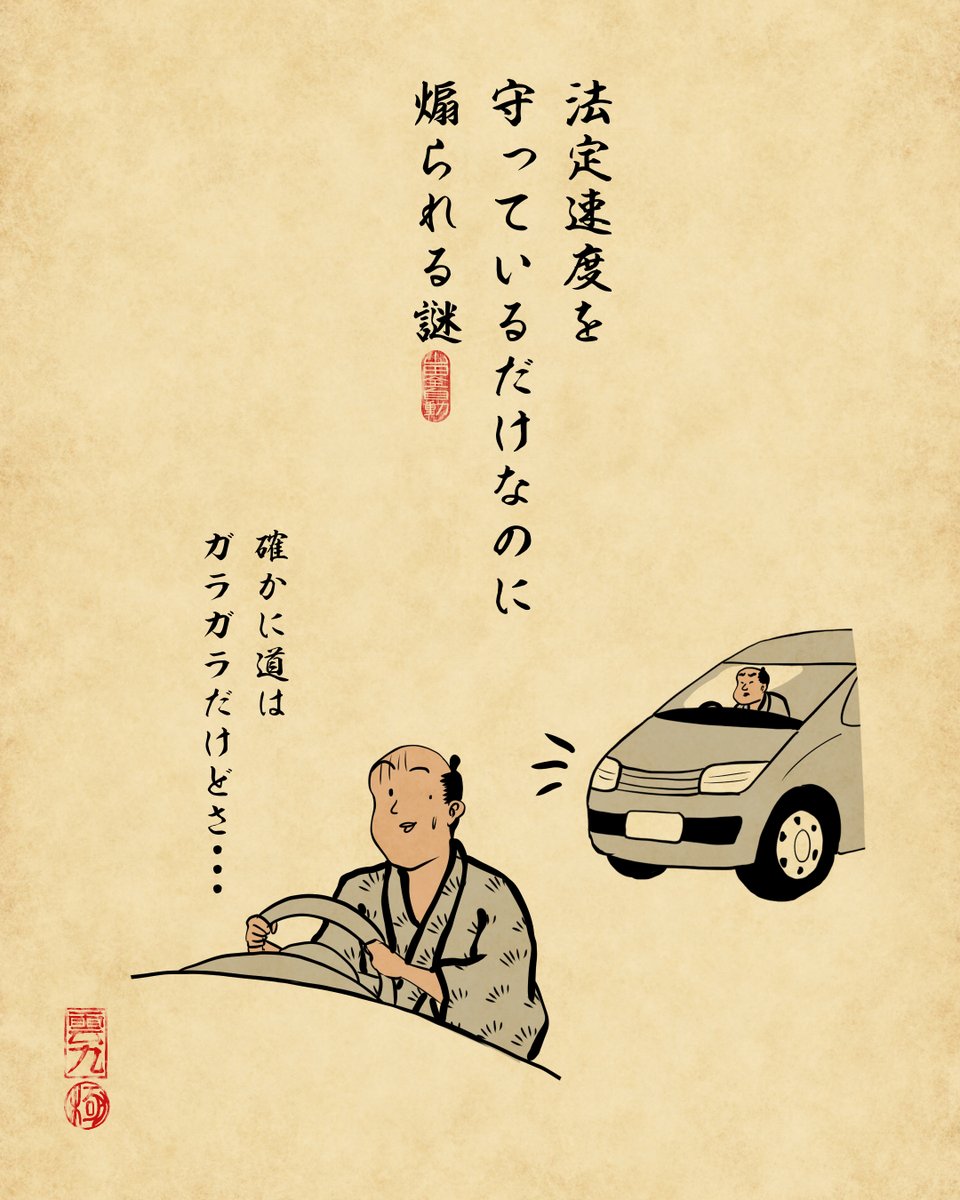 法定速度を
守っているだけなのに
煽られる謎
確かに道は
ガラガラだけどさ・・・